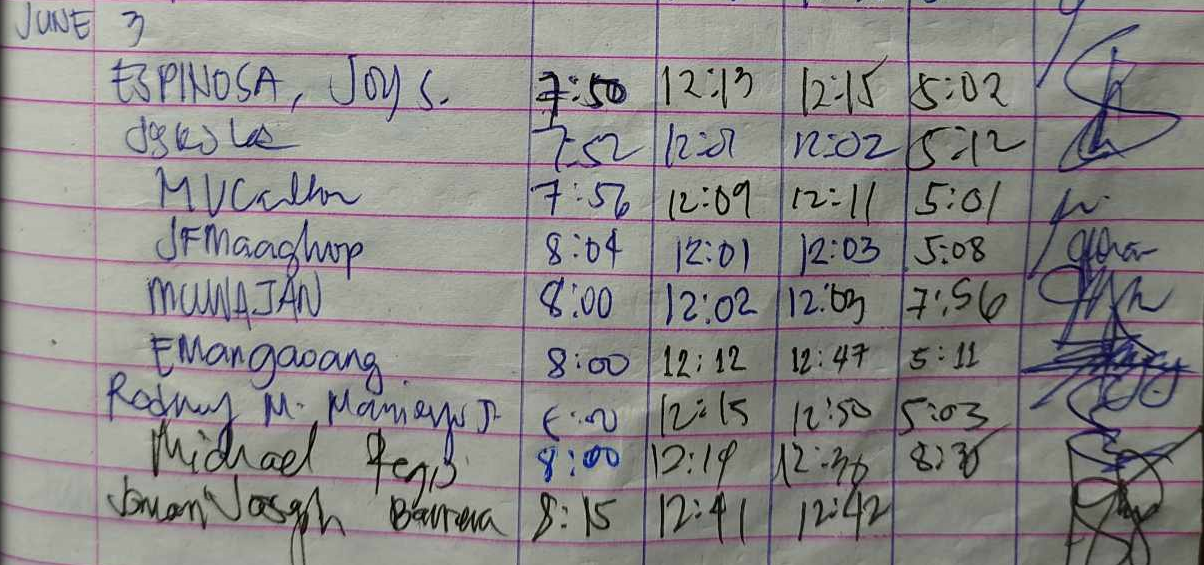 JUNE 3
ESPINOSA, JOY S. 7:50 12:13 12:15 5:02
7:52 12:01 12:02 5:12
7:56 12:09 12:11 5:01
JFMaaghop 8:04 12:01 12:03 5:08
MUNAJAN 8:00 12:02 12:03 7:56
EMangaoang 8:00 12:12 12:47 5:11
Rodney M. Jr. 12:15 12:50 5:03
Michael Regis 8:00 12:19 12:36 8:30
Joseph Barrera 8:15 12:41 12:42